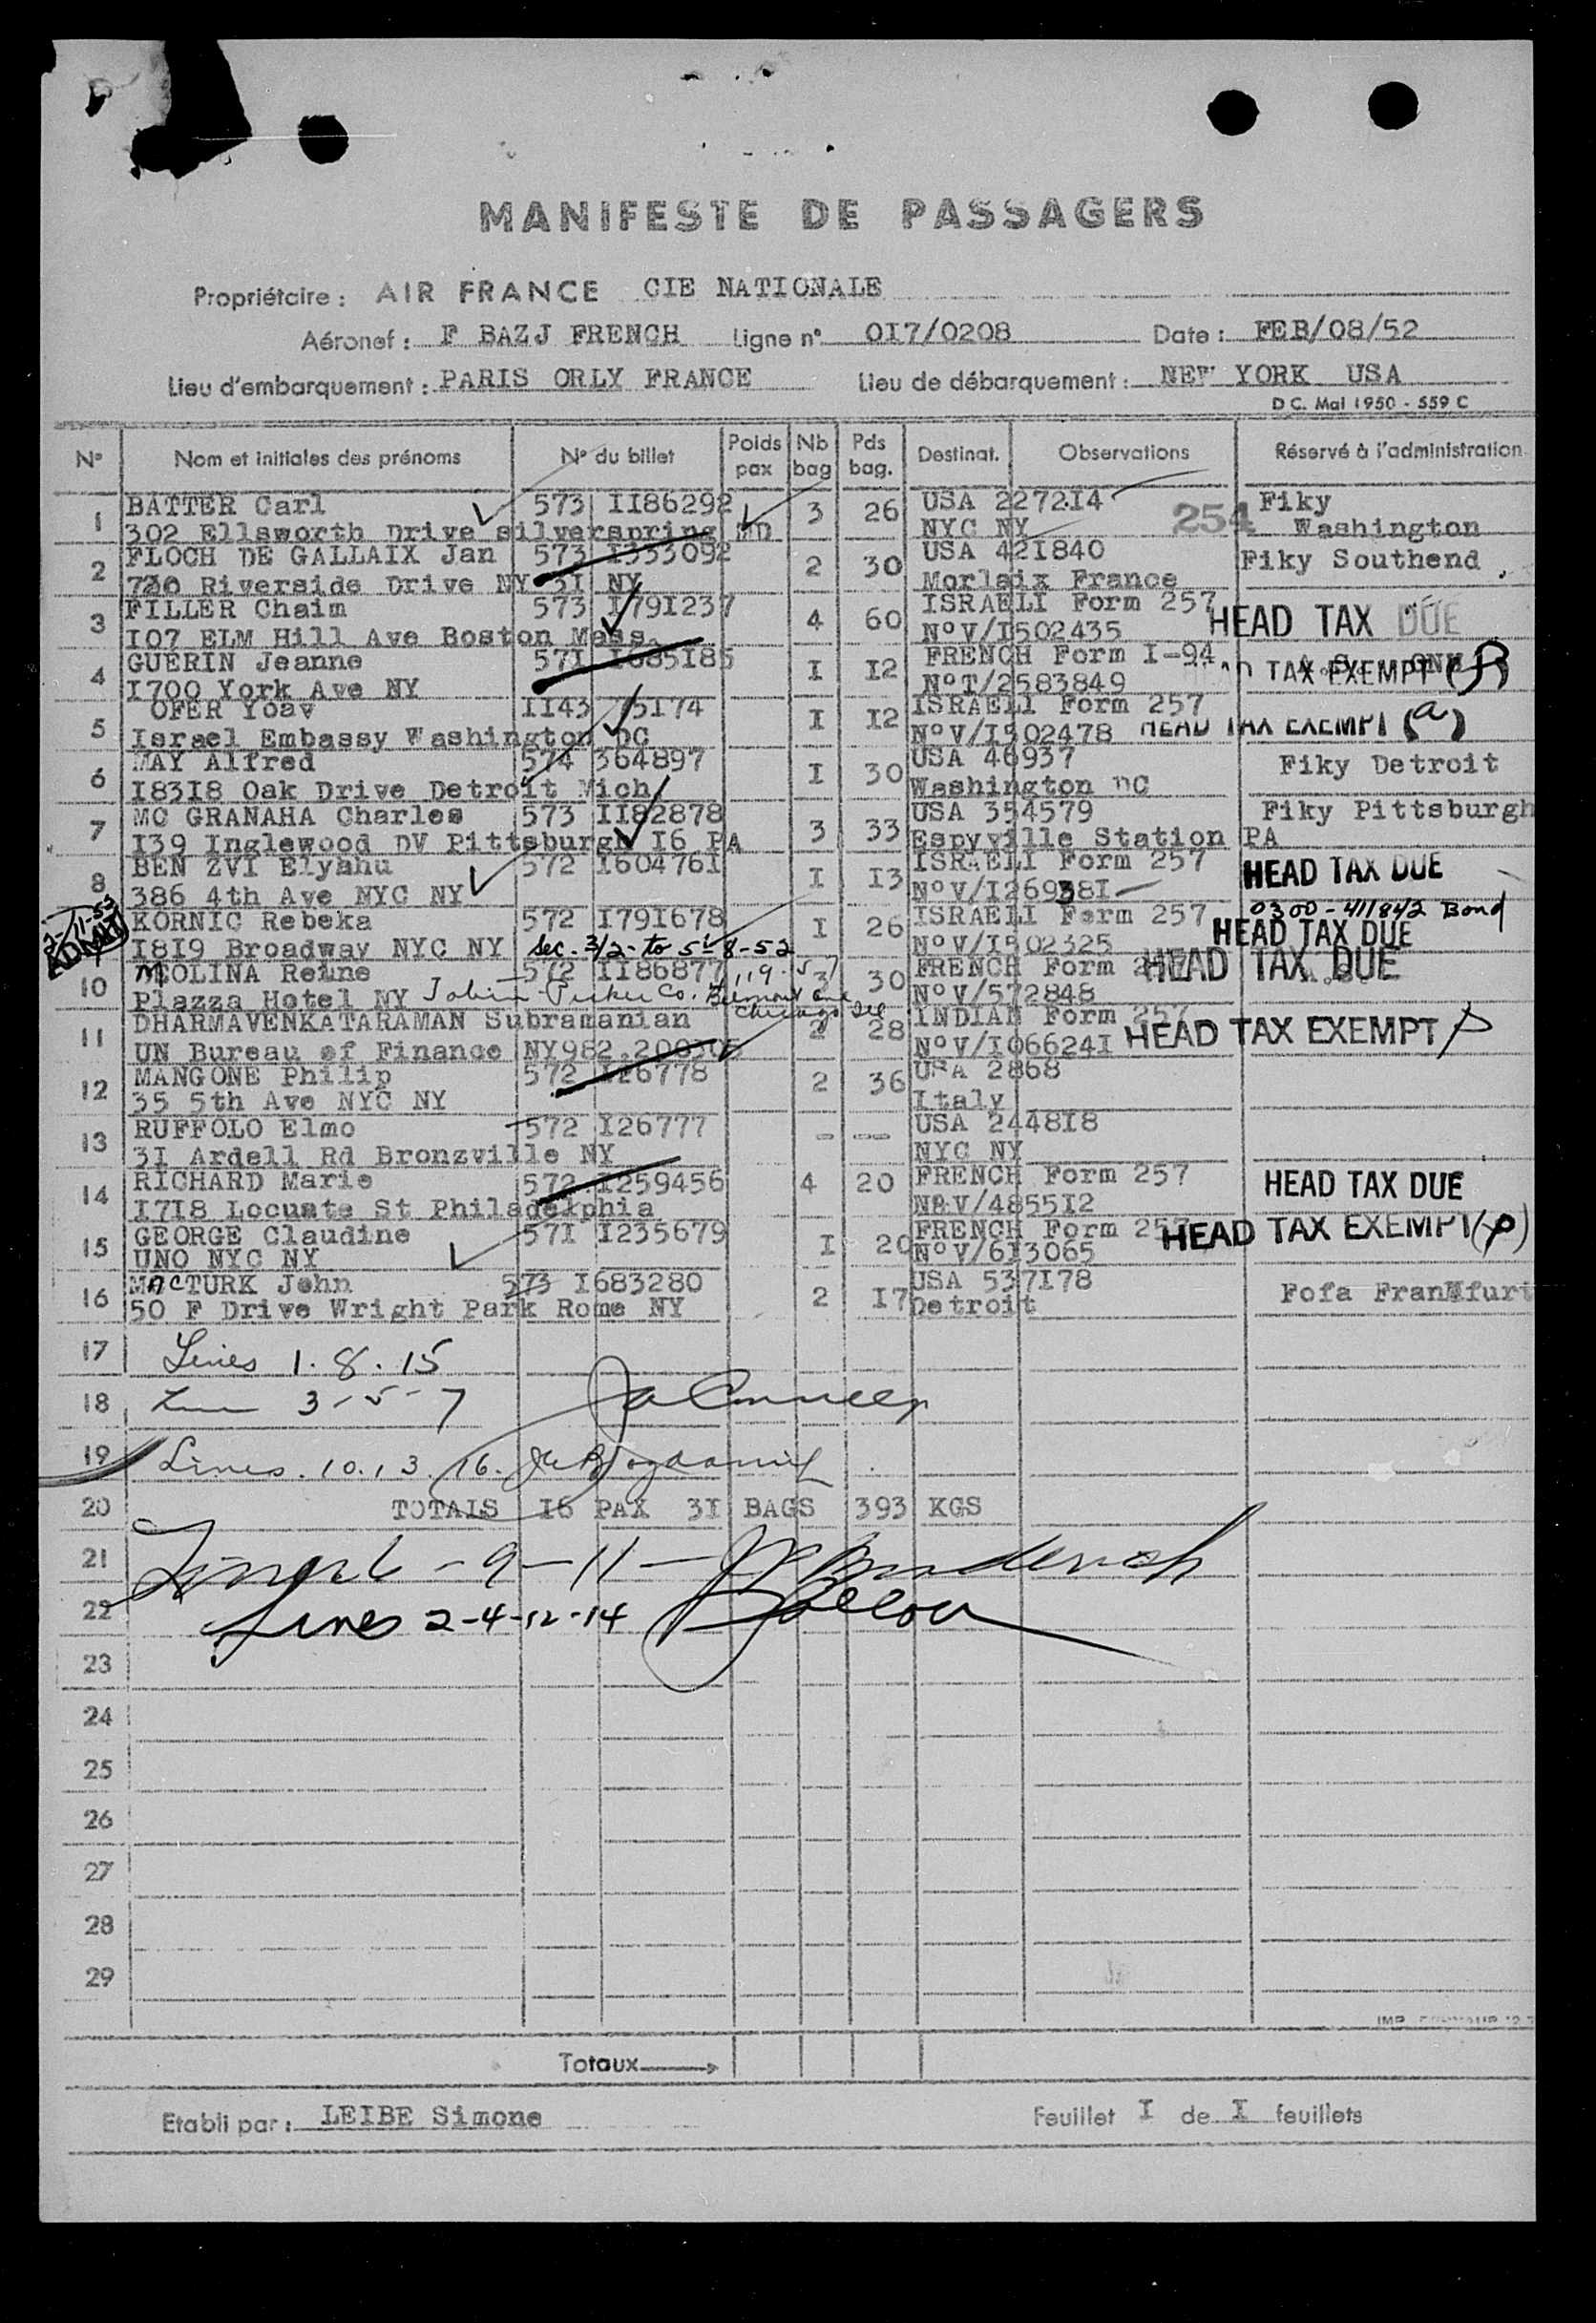 MANIFESTE DE PASSAGERS
Propriétaire : AIR FRANCE CIE NATIONALE
Aéronef : F BAZJ FRENCH Ligne n° OI7/0208 Date : FEB/08/52
Lieu d'embarquement : PARIS ORLY FRANCE Lieu de débarquement : NEW YORK USA
D C. Mai 1950 - 559 C
N° Nom et initiales des prénoms N° du billet Poids pax Nb bag Pds bag. Destinat. Observations Réservé à l'administration
1 BATTER Carl 573 II86292 3 26 USA 2272I4 254 Fiky
302 Ellsworth Drive silverspring MD NYC NY Washington
2 FLOCH DE GALLAIX Jan 573 I353092 2 30 USA 42I840 Fiky Southend
730 Riverside Drive NY 3I NY Morlaix France
3 FILLER Chaim 573 I79I237 4 60 ISRAELI Form 257 HEAD TAX DUE
I07 ELM Hill Ave Boston Mass. N°V/I502435
4 GUERIN Jeanne 57I I685I85 I I2 FRENCH Form I-94 HEAD TAX EXEMPT
I700 York Ave NY N°T/2583849
5 OFER Yoav II43 75I74 I I2 ISRAELI Form 257
Israel Embassy Washington DC N°V/I502478 HEAD TAX EXEMPT (a)
6 MAY Alfred 574 364897 I 30 USA 46937 Fiky Detroit
I83I8 Oak Drive Detroit Mich Washington DC
7 MC GRANAHA Charles 573 II82878 3 33 USA 354579 Fiky Pittsburgh
I39 Inglewood DV Pittsburgh I6 PA Espyville Station PA
8 BEN ZVI Elyahu 572 I60476I I I3 ISRAELI Form 257 HEAD TAX DUE
386 4th Ave NYC NY N°V/I26938I
ADMIT KORNIC Rebeka 572 I79I678 I 26 ISRAELI Form 257 0300-411842 Bond
I8I9 Broadway NYC NY Sec. 3/2 - to 5-8-52 N°V/I502325 HEAD TAX DUE
10 MCOLINA Reine 572 II86877 3 30 FRENCH Form HEAD TAX DUE
Plazza Hotel NY Co. Belmont Ave Chicago Ill N°V/572848
11 DHARMAVENKATARAMAN Subramanian 2 28 INDIAN Form 257
UN Bureau of Finance NY982.200305 N°V/I06624I HEAD TAX EXEMPT
12 MANGONE Philip 572 I26778 2 36 USA 2868
35 5th Ave NYC NY Italy
13 RUFFOLO Elmo 572 I26777 - -- USA 2448I8
3I Ardell Rd Bronzville NY NYC NY
14 RICHARD Marie 572 I259456 4 20 FRENCH Form 257 HEAD TAX DUE
I7I8 Locuste St Philadelphia N°V/4855I2
15 GEORGE Claudine 57I I235679 I 20 FRENCH Form 257 HEAD TAX EXEMPT (p)
UNO NYC NY N°V/6I3065
16 MACTURK John 573 I683280 2 I7 USA 537I78 Fofa Frankfurt
50 F Drive Wright Park Rome NY Detroit
17 Lines 1. 8. 15
18 3-5-7
19 Lines. 10. 13. 16.
20 TOTALS I6 PAX 3I BAGS 393 KGS
21 6 - 9 - 11 -
22 Lines 2-4-12-14
23
24
25
26
27
28
29
Totaux
Etabli par : LEIBE Simone Feuillet I de I feuillets